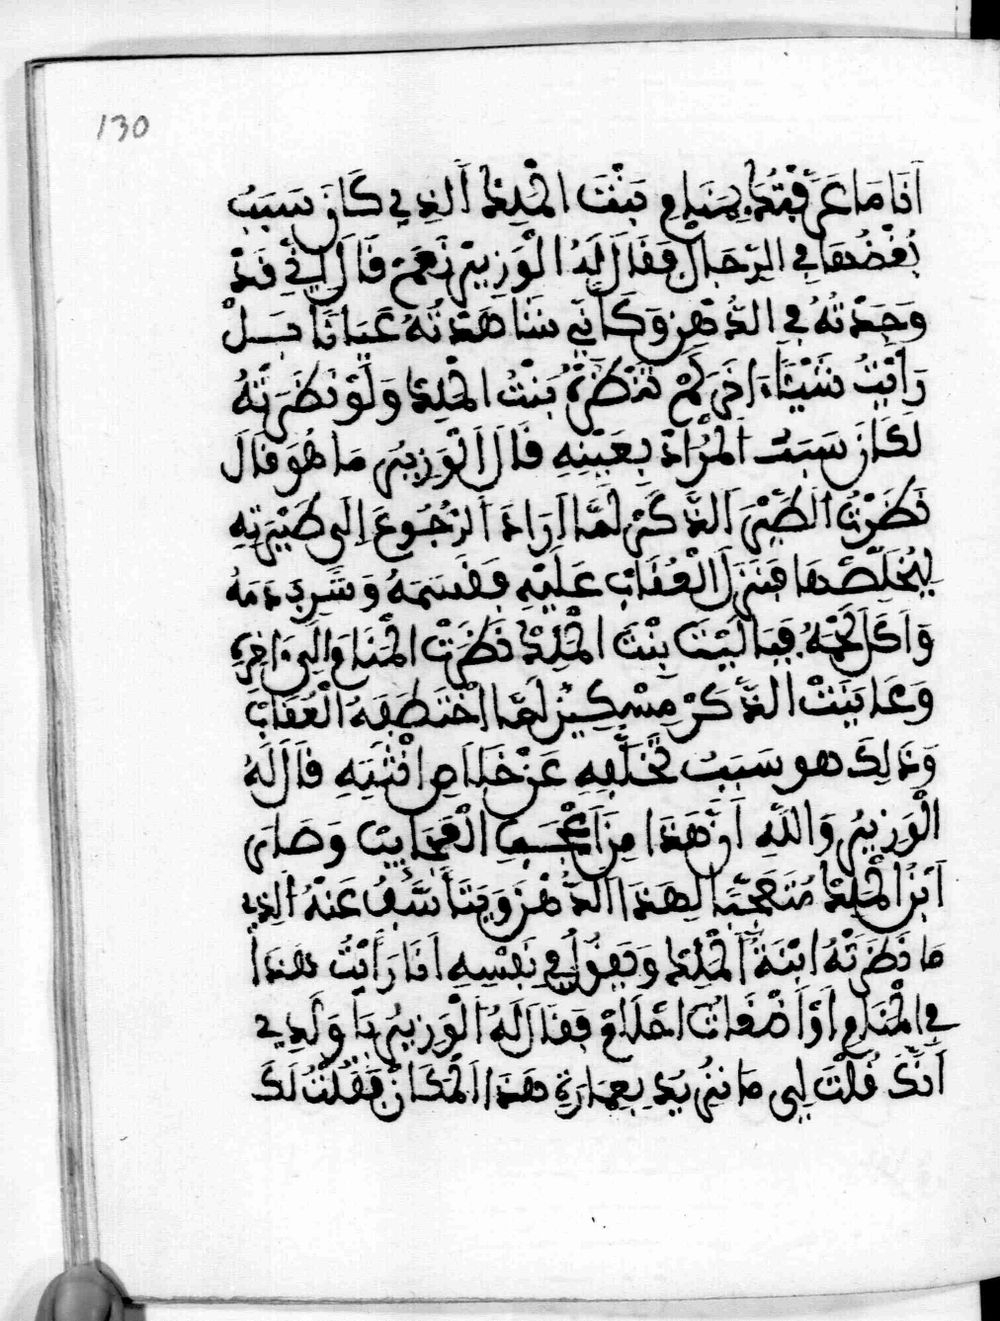 130
أنا ما عرفتك بمنام بنت الملك الذي كان سبب
بغضها في الرجال فقال له الوزير نعم قال إني قد
وجدته في الدهن وكأني شاهدته عيانا بل
رأيت شيئا آخر لم تنظره بنت الملك ولو نظرته
لكان سبب المراد بعينه قال الوزير ما هو قال
نظرت الطير الذكر لما أراد الرجوع إلى طيرته
ليخلصها فنزل العقاب عليه فقسمه وشرب دمه
وأكل لحمه فياليت بنت الملك نظرت المنام إلى آخره
وعاينت الذكر مسكين لما اختطفه العقاب
وذلك هو سبب تخلفه عن خلاص انثيه قال له
الوزير والله أن هذا من أعجب العجايب وصار
ابن الملك متعجبا لهذا الدهن ويتأسف عنه الذي
ما نظرته ابنة الملك ويقول في نفسه أنا رأيت هذا
في المنام أو أضغاث احلام فقال له الوزير يا ولدي
أنك قلت لي ما نريد بعمارة هذا المكان فقلت لك